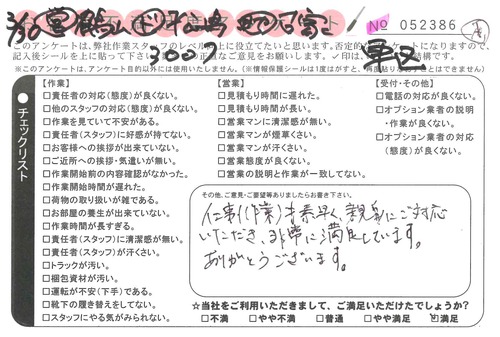 No 052386
このアンケートは、弊社作業スタッフのレベル
記入後シールを上に貼って下さ
※このアンケートは、アンケート目的以外には使用いたしません。(※情報保護シールは1度はがすと、再度貼りなおすことはできません)
3007
チェックリスト
【作業】
□責任者の対応(態度)が良くない。
□他のスタッフの対応(態度)が良くない。
□作業を見ていて不安がある。
□責任者(スタッフ)に好感が持てない。
□お客様への挨拶が出来ていない。
□ご近所への挨拶・気遣いが無い。
□作業開始前の内容確認がなかった。
□作業開始時間が遅れた。
□荷物の取り扱いが雑である。
□お部屋の養生が出来ていない。
□作業時間が長すぎる。
□責任者(スタッフ)に清潔感が無い。
□責任者(スタッフ)が汗くさい。
□トラックが汚い。
□梱包資材が汚い。
□運転が不安(下手)である。
□靴下の履き替えをしてない。
□スタッフにやる気がみられない。
【営業】
□見積もり時間に遅れた。
□見積もり時間が長い。
□営業マンに清潔感が無い。
□営業マンが煙草くさい。
□営業マンが汗くさい。
□営業態度が良くない。
□営業の説明と作業が一致してない。
【受付・その他】
□電話の対応が良くない。
□オプション業者の説明
・作業が良くない。
□オプション業者の対応
(態度)が良くない。
その他、ご意見・ご要望等ありましたらお書き下さい。
仕事(作業)も素早く、親身にご対応
いただき、非常に満足しています。
ありがとうございます。
☆当社をご利用いただきまして、ご満足いただけたでしょうか?
□不満 □やや不満 □普通 □やや満足 ☑満足